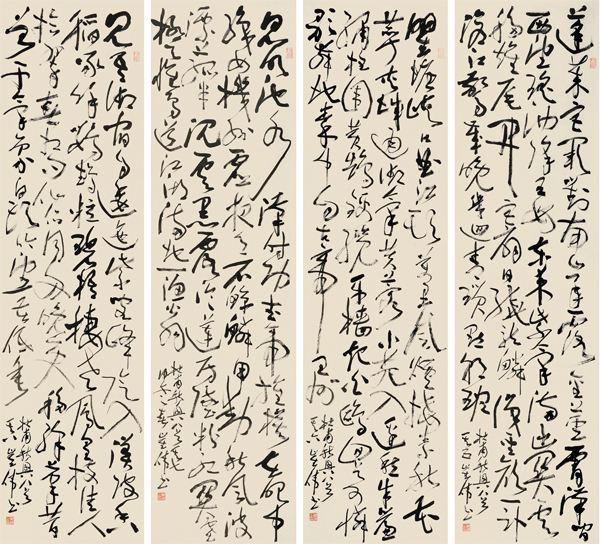 蓬莱宫阙对南山承露金茎霄汉间
西望瑶池降王母东来紫气满函关云
移雉尾开宫扇日绕龙鳞识圣颜一卧
沧江惊岁晚几回青琐点朝班
杜甫秋兴八首
之五
瞿塘峡口曲江头万里风烟接素秋花
萼夹城通御气芙蓉小苑入边愁珠帘
绣柱围黄鹄锦缆牙樯起白鸥回首可怜
歌舞地秦中自古帝王州
杜甫秋兴八首
之六
昆明池水汉时功武帝旌旗在眼中
织女机丝虚夜月石鲸鳞甲动秋风波
漂菰米沉云黑露冷莲房坠粉红关塞
极天惟鸟道江湖满地一渔翁
杜甫秋兴八首之七
昆吾御宿自逶迤紫阁峰阴入渼陂香
稻啄余鹦鹉粒碧梧栖老凤凰枝佳人
拾翠春相问仙侣同舟晚更移彩笔昔
曾干气象白头吟望苦低垂
杜甫秋兴八首
之八